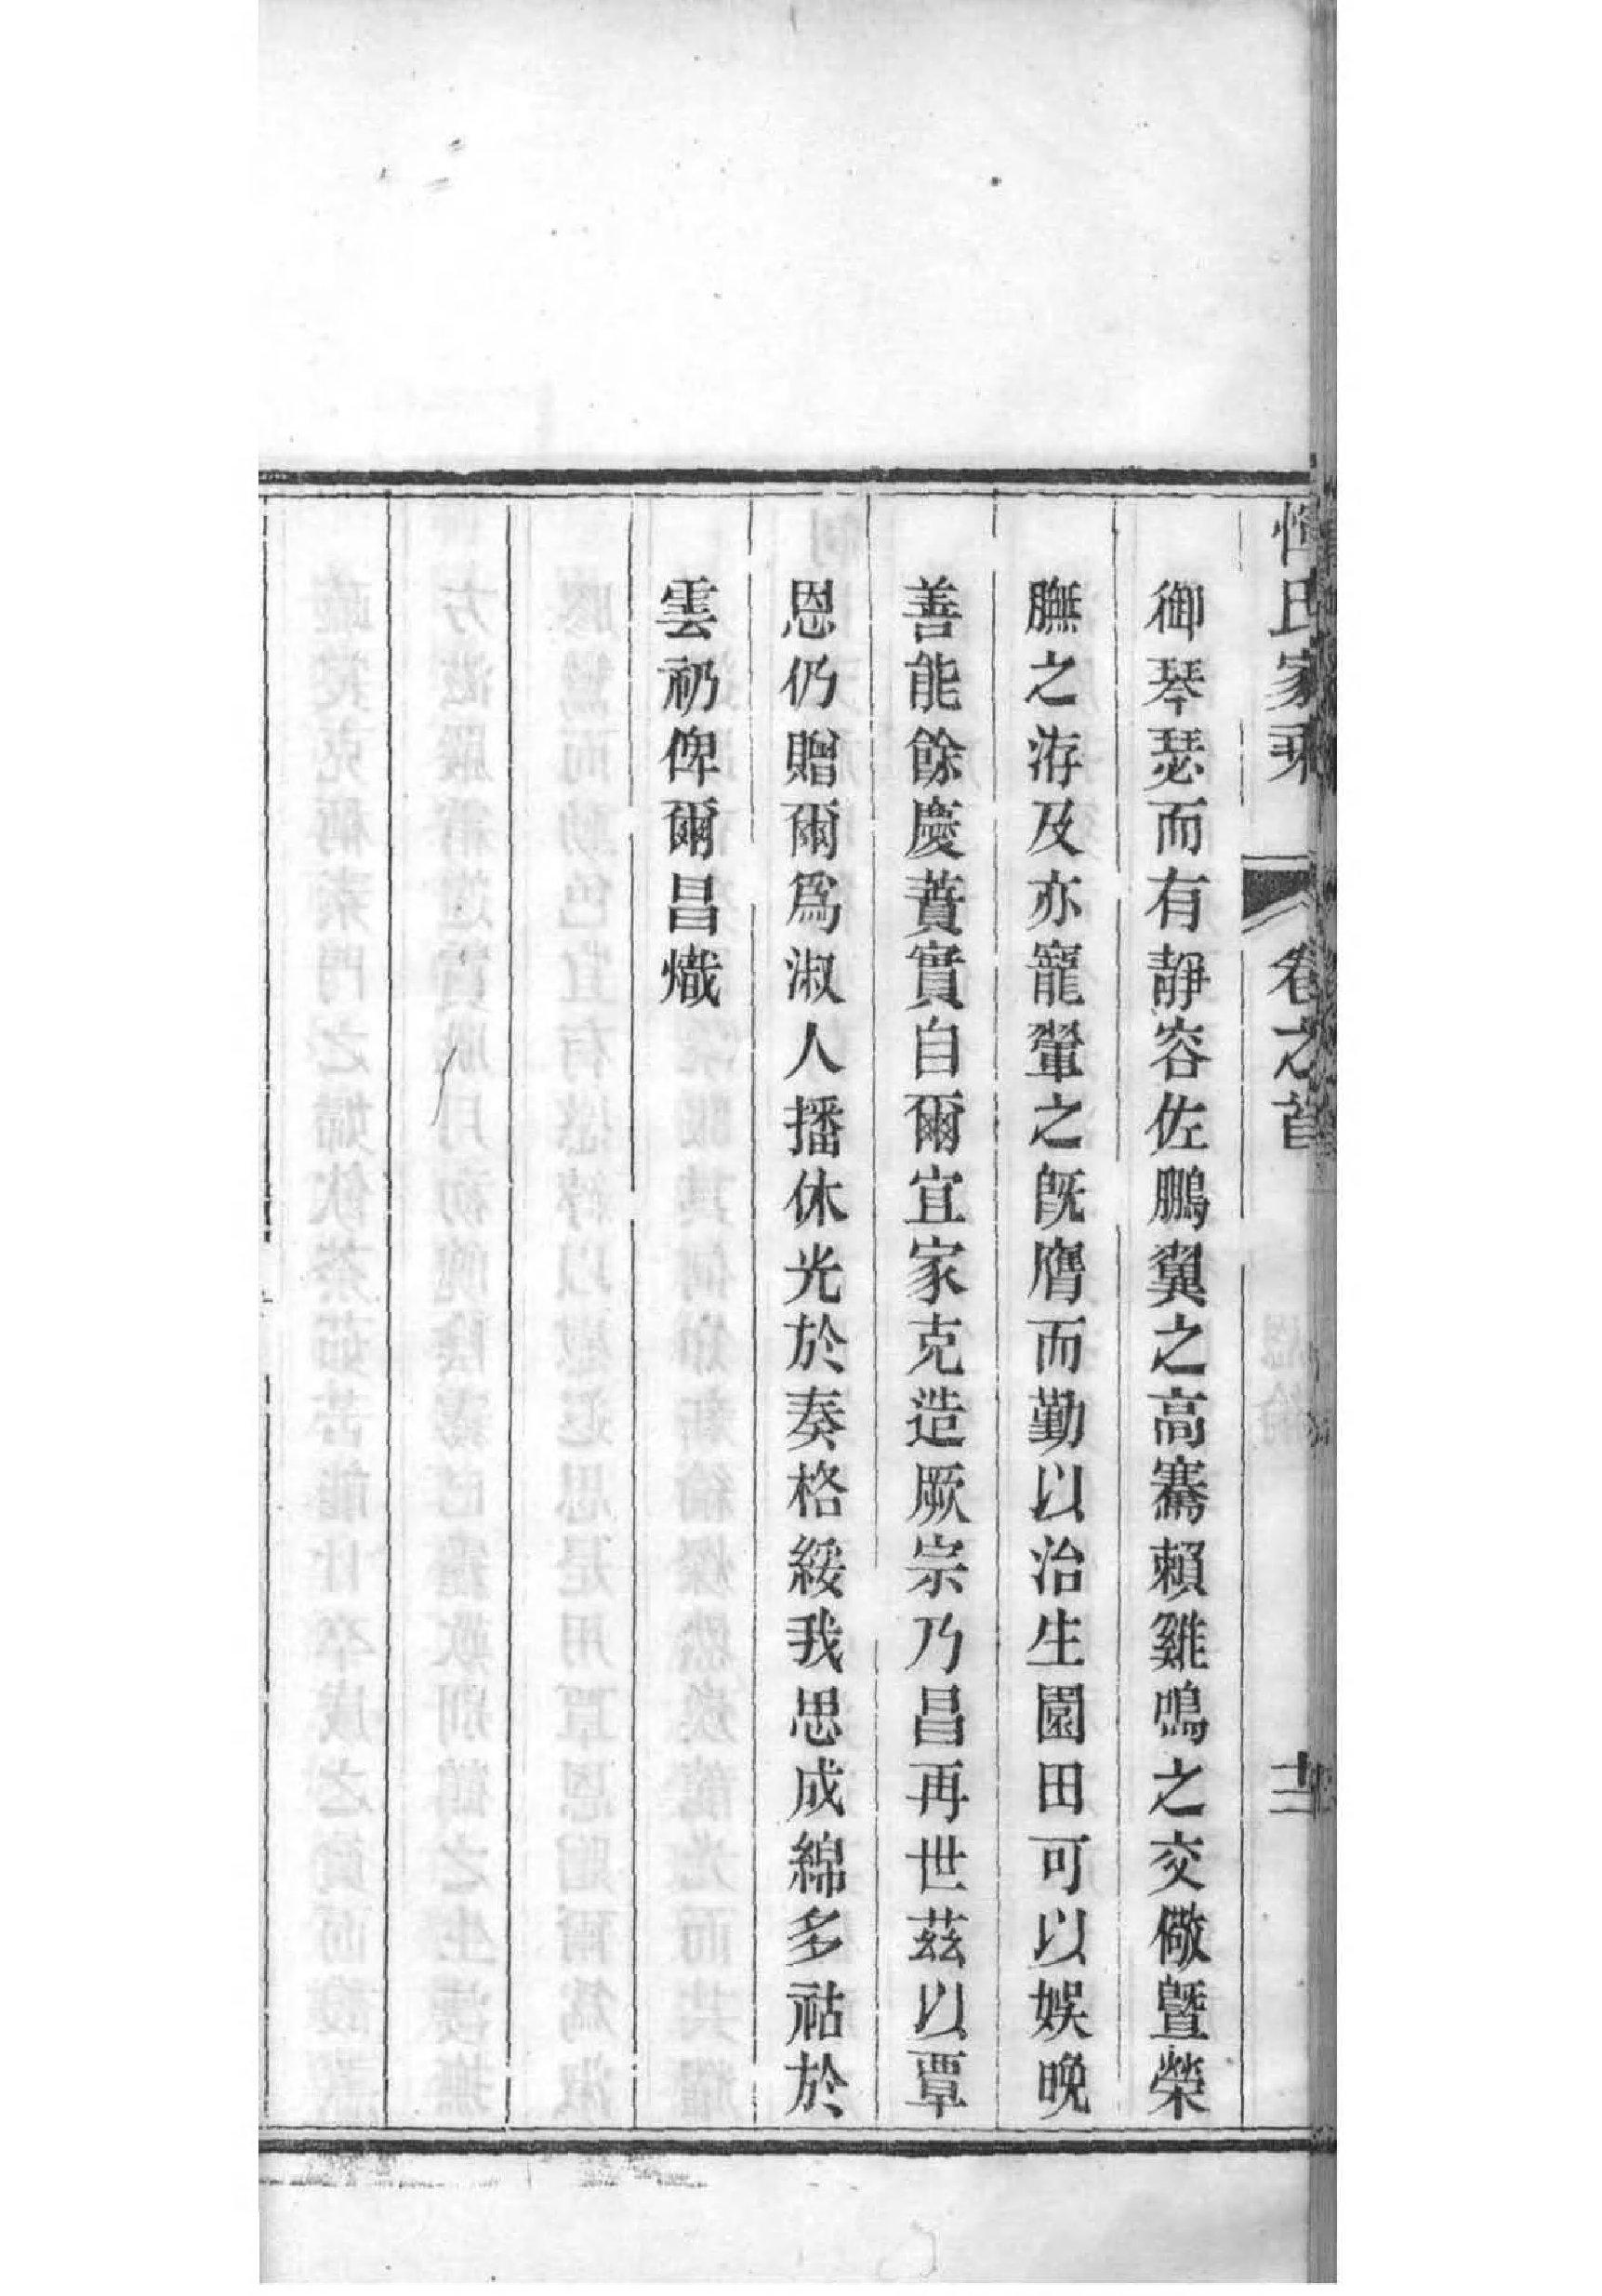 惲氏家乘 卷之首 十二
御琴瑟而有靜容佐鵬翼之高騫賴雞鳴之交儆曁榮
膴之洊及亦寵翬之旣膺而勤以治生園田可以娛晚
善能餘慶蕡實自爾宜家克造厥宗乃昌再世茲以覃
恩仍贈爾爲淑人播休光於奏格綏我思成綿多祜於
雲礽俾爾昌熾